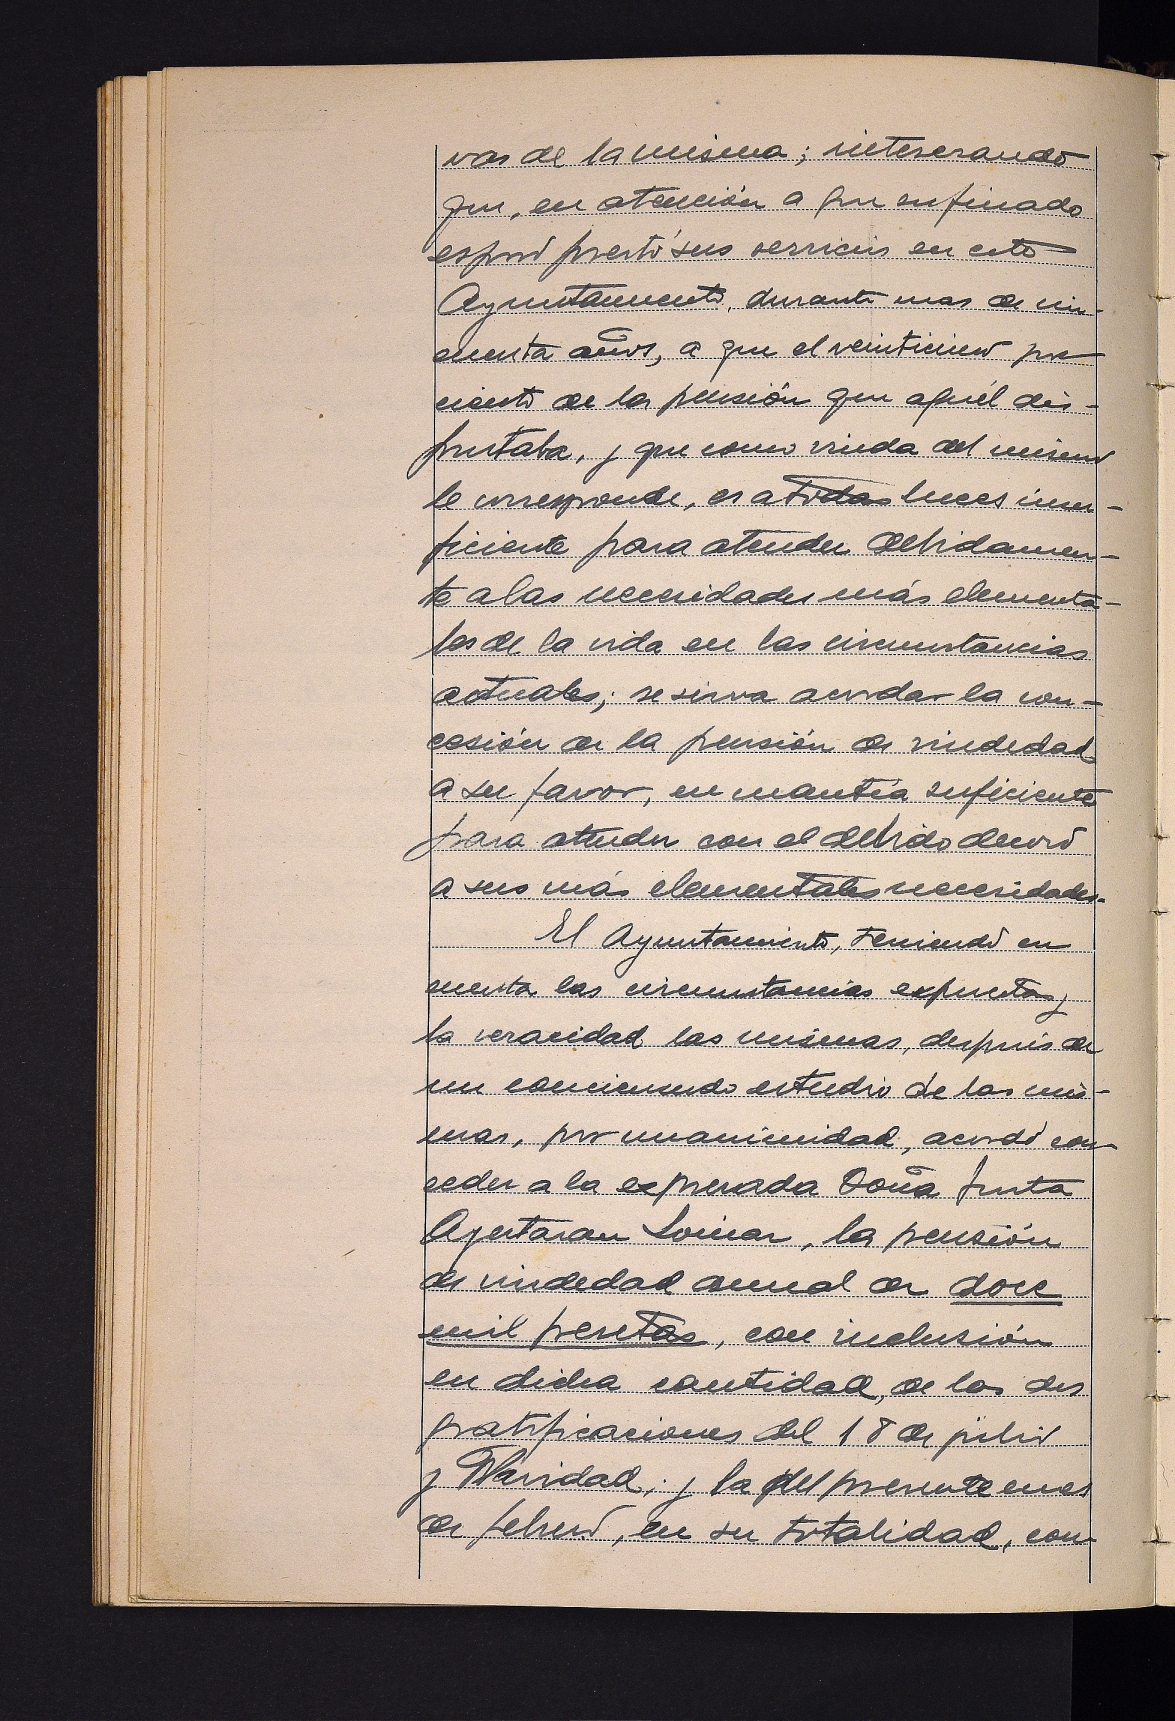 vas de la misma; interesando
que, en atención a que su finado
esposo prestó sus servicios en este
Ayuntamiento, durante mas de cin-
cuenta años, a que el veinticinco por
ciento de la pensión que aquél dis-
frutaba, y que como viuda del mismo
le corresponde, es a todas luces insu-
ficiente para atender debidamen-
te a las necesidades más elementa-
les de la vida en las circunstancias
actuales; se sirva acordar la con-
cesión de la pensión de viudedad
a su favor, en cuantía suficiente
para atender con el debido decoro
a sus más elementales necesidades.
El Ayuntamiento, teniendo en
cuenta las circunstancias expuestas y
la veracidad las mismas, después de
un concienzudo estudio de las mis-
mas, por unanimidad, acordó con-
ceder a la expresada Doña Justa
Ayestaran Soinar, la pensión
de viudedad anual de doce
mil pesetas, con inclusión
en dicha cantidad, de las dos
gratificaciones del 18 de julio
y Navidad; y la del presente mes
de febrero, en su totalidad, con